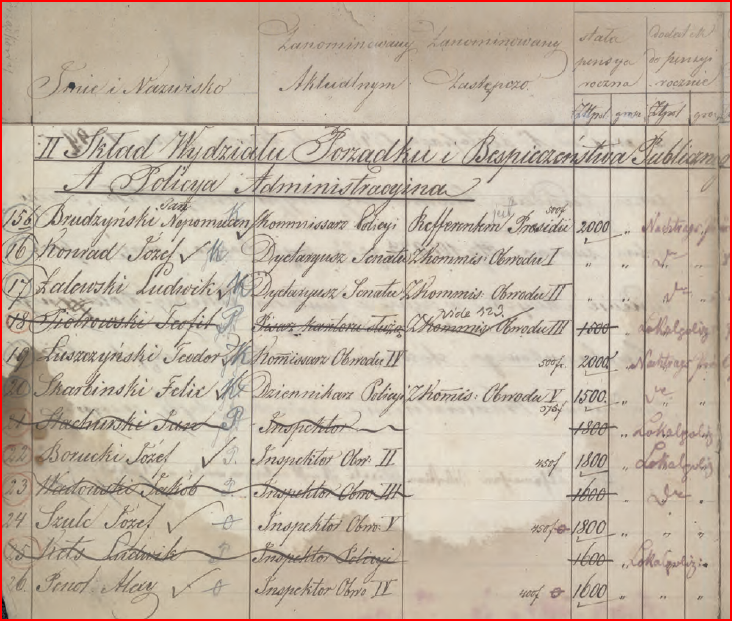 Imie i Nazwisko Zanominowany Aktualnym Zanominowany Zastępczo. stała pensya roczna dodatek do pensyi rocznie
Złpol grosz Złpol grosz
II Skład Wydziału Porządku i Bespieczeństwa Publiczneg
A Policya Administracyina
15 Brudzyński Jan Nepomucen K Kommissarz Policyi Refferentem Presidii 500f 2000 „
16 Konrad Józef ✓ K Dyetaryusz Senatu Z Kommis: Obwodu I „ „ dto „
17 Zalowski Ludwik ✓ K Dyetaryusz Senatu Z Kommis. Obwodu II „ „ dto „
18 Piotrowski Teofil P. Pisarz Z Kommis Obwodu III vide 523 1800 „ Lokalpoliz
19 Łuszczyński Teodor K Komissarz Obwodu IV 500f. 2000 „
20 Skarbinski Felix K Dziennikarz Policyi Z Komis: Obwodu V 375f 1500. „ dto „
21 Stachurski Jan P. Inspektor 1800 „ Lokalpoliz
22 Borucki Józef ✓ P. Inspektor Obw. II 450f 1800 „ Lokalpoliz
23 Jakób P. Inspektor Obwo III 1600 „ dto „
24 Szulc Józef ✓ o Inspektor Obwo. V 450f o 1800 „ „ „
25 Ludwik P Inspektor Policyi 1600 „ Lokalpoliz:
26. ✓ o Inspektor Obwo IV 400f o 1600 „ „ „